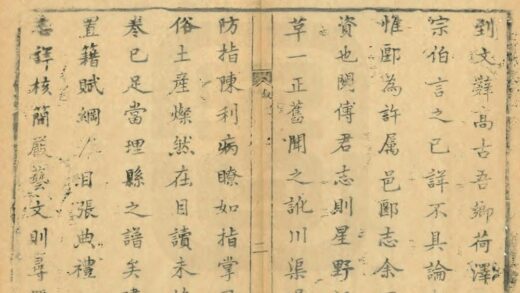 到文辭高古吾鄉荷澤
宗伯言之已詳不具論
惟郾為許属邑郾志余
資也閱傅君志則星野
草一正舊聞之訛川渠
二
防指陳利病瞭如指掌
俗土產燦然在目讀未
卷已足當理縣之譜矣
置籍賦綱目張典禮
詳核簡嚴藝文則尋